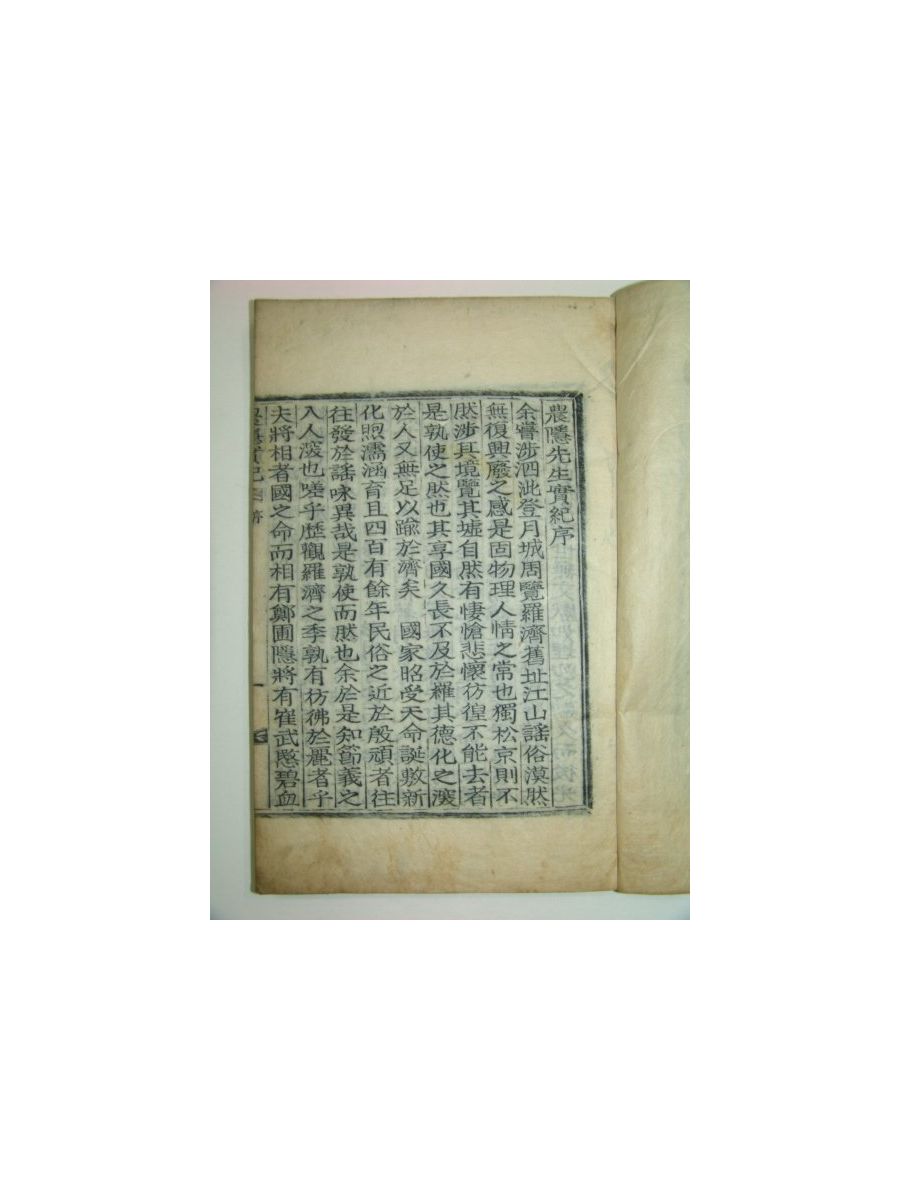 農隱先生實紀序
余嘗涉泗沘登月城周覽羅濟舊址江山謠俗漠然
無復興廢之感是固物理人情之常也獨松京則不
然涉其境覽其墟自然有悽愴悲懷彷徨不能去者
是孰使之然也其享國久長不及於羅其德化之深
於人又無足以踰於濟矣　國家昭受天命誕敷新
化煦濡涵育且四百有餘年民俗之近於殷頑者往
往發於謠咏異哉是孰使而然也余於是知節義之
入人深也嗟乎歷觀羅濟之季孰有彷彿於麗者乎
夫將相者國之命而相有鄭圃隱將有崔武愍碧血
農隱實紀 序 一